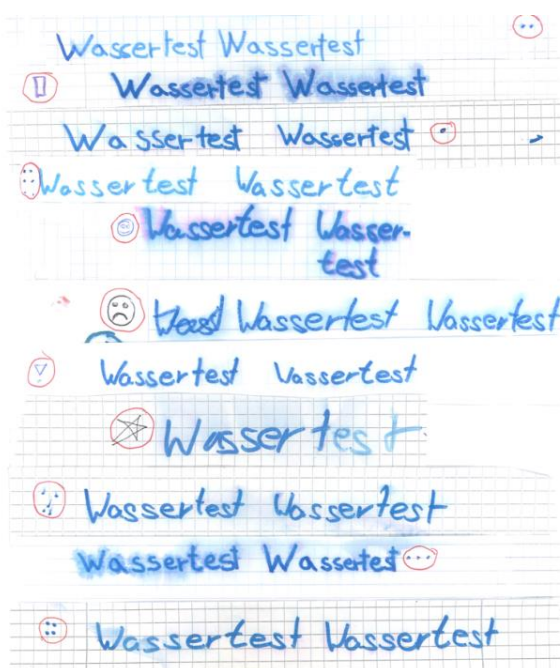 Wassertest Wassertest
Wassertest Wassertest
Wassertest Wassertest
Wassertest Wassertest
Wassertest Wasser-
test
Wassertest Wassertest
Wassertest Wassertest
Wassertest
Wassertest Wassertest
Wassertest Wassertest
Wassertest Wassertest